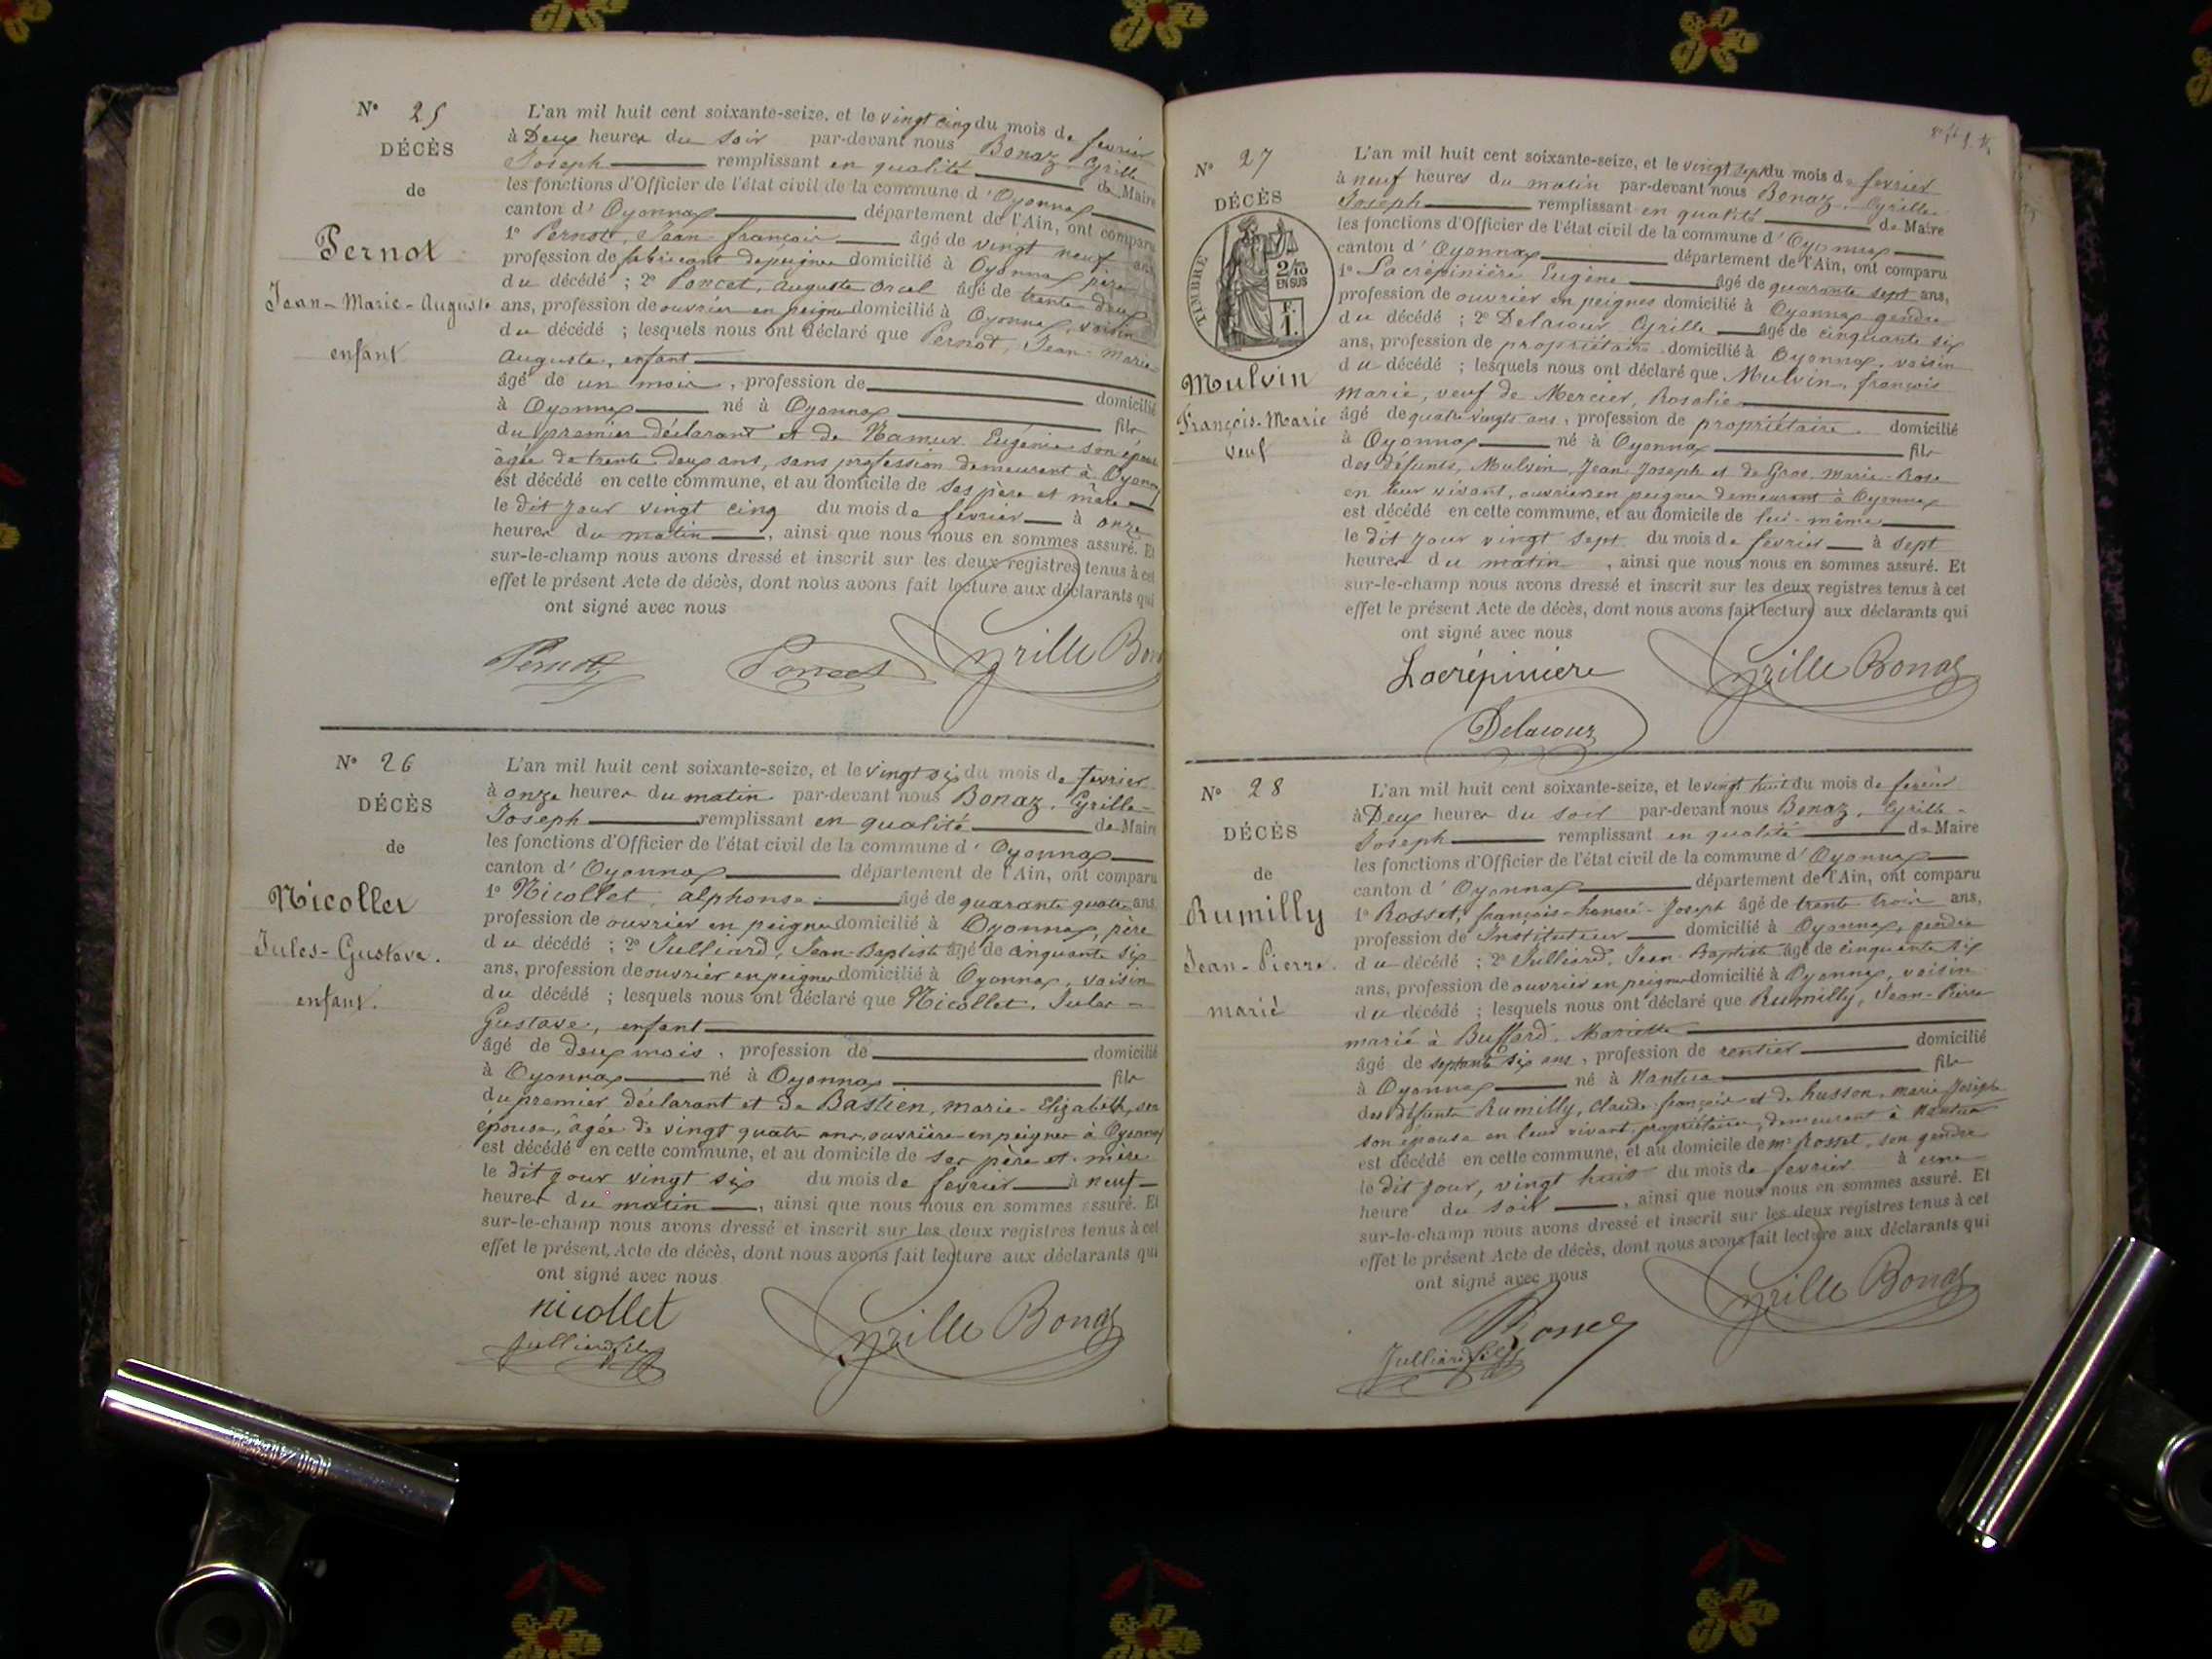 N° 25
DÉCÈS
de
Pernot
Jean-Marie-Auguste
enfant
L'an mil huit cent soixante-seize, et le vingt cinq du mois de fevrier
à Deux heures du soir par-devant nous Bonaz Cyrille
Joseph remplissant en qualité de Maire
les fonctions d'Officier de l'état civil de la commune d'Oyonnax
canton d'Oyonnax département de l'Ain, ont comparu
1° Pernot, Jean-françois âgé de vingt neuf ans
profession de fabricant depeignes domicilié à Oyonnax père
du décédé ; 2° Poncet, Auguste Orcel âgé de trente deux
ans, profession de ouvrier en peignes domicilié à Oyonnax, voisin
du décédé ; lesquels nous ont déclaré que Pernot, Jean-Marie-
Auguste, enfant
âgé de un mois, profession de domicilié
à Oyonnax né à Oyonnax fils
du premier déclarant et de Namur Eugénie son épouse
âgée de trente deux ans, sans profession demeurant à Oyonnax
est décédé en cette commune, et au domicile de ses père et mère
le dit jour vingt cinq du mois de fevrier à onze
heures du matin, ainsi que nous nous en sommes assuré. Et
sur-le-champ nous avons dressé et inscrit sur les deux registres tenus à cet
effet le présent Acte de décès, dont nous avons fait lecture aux déclarants qui
ont signé avec nous
Pernot Poncet Cyrille Bon
N° 26
DÉCÈS
de
Nicollet
Jules-Gustave.
enfant.
L'an mil huit cent soixante-seize, et le vingt six du mois de fevrier
à onze heures du matin par-devant nous Bonaz, Cyrille-
Joseph remplissant en qualité de Maire
les fonctions d'Officier de l'état civil de la commune d'Oyonnax
canton d'Oyonnax département de l'Ain, ont comparu
1° Nicollet, alphonse âgé de quarante quatre ans
profession de ouvrier en peignes domicilié à Oyonnax, père
du décédé ; 2° Julliard, Jean-Baptiste âgé de cinquante six
ans, profession de ouvrier en peignes domicilié à Oyonnax, voisin
du décédé ; lesquels nous ont déclaré que Nicollet, Jules-
Gustave, enfant
âgé de deux mois, profession de domicilié
à Oyonnax né à Oyonnax fils
du premier déclarant et de Bastien, marie-Elizabeth, son
épouse, âgée de vingt quatre ans, ouvrière en peignes à Oyonnax
est décédé en cette commune, et au domicile de ses père et mère
le dit jour vingt six du mois de fevrier à neuf
heures du matin, ainsi que nous nous en sommes assuré. Et
sur-le-champ nous avons dressé et inscrit sur les deux registres tenus à cet
effet le présent Acte de décès, dont nous avons fait lecture aux déclarants qui
ont signé avec nous
nicollet Cyrille Bonaz
Julliard fils
N° 27
DÉCÈS
TIMBRE
2/10
EN SUS
F.
1.
Mulvin
François-Marie
veuf
L'an mil huit cent soixante-seize, et le vingt sept du mois de fevrier
à neuf heures du matin par-devant nous Bonaz, Cyrille
Joseph remplissant en qualité de Maire
les fonctions d'Officier de l'état civil de la commune d'Oyonnax
canton d'Oyonnax département de l'Ain, ont comparu
1° Lacrépinière Eugène âgé de quarante sept ans,
profession de ouvrier en peignes domicilié à Oyonnax gendre
du décédé ; 2° Delacour Cyrille âgé de cinquante six
ans, profession de propriétaire domicilié à Oyonnax, voisin
du décédé ; lesquels nous ont déclaré que Mulvin, françois
Marie, veuf de Mercier, Rosalie
âgé de quatre vingts ans, profession de propriétaire domicilié
à Oyonnax né à Oyonnax fils
des défunts, Mulvin, Jean Joseph et de Gros, Marie-Rose
en leur vivant, ouvriers en peignes demeurant à Oyonnax
est décédé en cette commune, et au domicile de lui-même
le dit jour vingt sept du mois de fevrier à sept
heures du matin, ainsi que nous nous en sommes assuré. Et
sur-le-champ nous avons dressé et inscrit sur les deux registres tenus à cet
effet le présent Acte de décès, dont nous avons fait lecture aux déclarants qui
ont signé avec nous
Lacrépiniere Cyrille Bonaz
Delacour
N° 28
DÉCÈS
de
Rumilly
Jean-Pierre.
marié
L'an mil huit cent soixante-seize, et le vingt huit du mois de fevrier
à Deux heures du soir par-devant nous Bonaz, Cyrille-
Joseph remplissant en qualité de Maire
les fonctions d'Officier de l'état civil de la commune d'Oyonnax
canton d'Oyonnax département de l'Ain, ont comparu
1° Rosset, françois-honoré-Joseph âgé de trente trois ans,
profession de Instituteur domicilié à Oyonnax, gendre
du décédé ; 2° Julliard, Jean-Baptiste âgé de cinquante six
ans, profession de ouvrier en peignes domicilié à Oyonnax, voisin
du décédé ; lesquels nous ont déclaré que Rumilly, Jean-Pierre
marié à Buffard, Mariette
âgé de septante six ans, profession de rentier domicilié
à Oyonnax né à Nantua fils
des défunts Rumilly, claude-françois et de husson, marie Josèphe
son épouse en leur vivant propriétaires, demeurant à Nantua
est décédé en cette commune, et au domicile de mr Rosset, son gendre
le dit jour, vingt huit du mois de fevrier à une
heure du soir, ainsi que nous nous en sommes assuré. Et
sur-le-champ nous avons dressé et inscrit sur les deux registres tenus à cet
effet le présent Acte de décès, dont nous avons fait lecture aux déclarants qui
ont signé avec nous
Rosset Cyrille Bonaz
Julliard fils